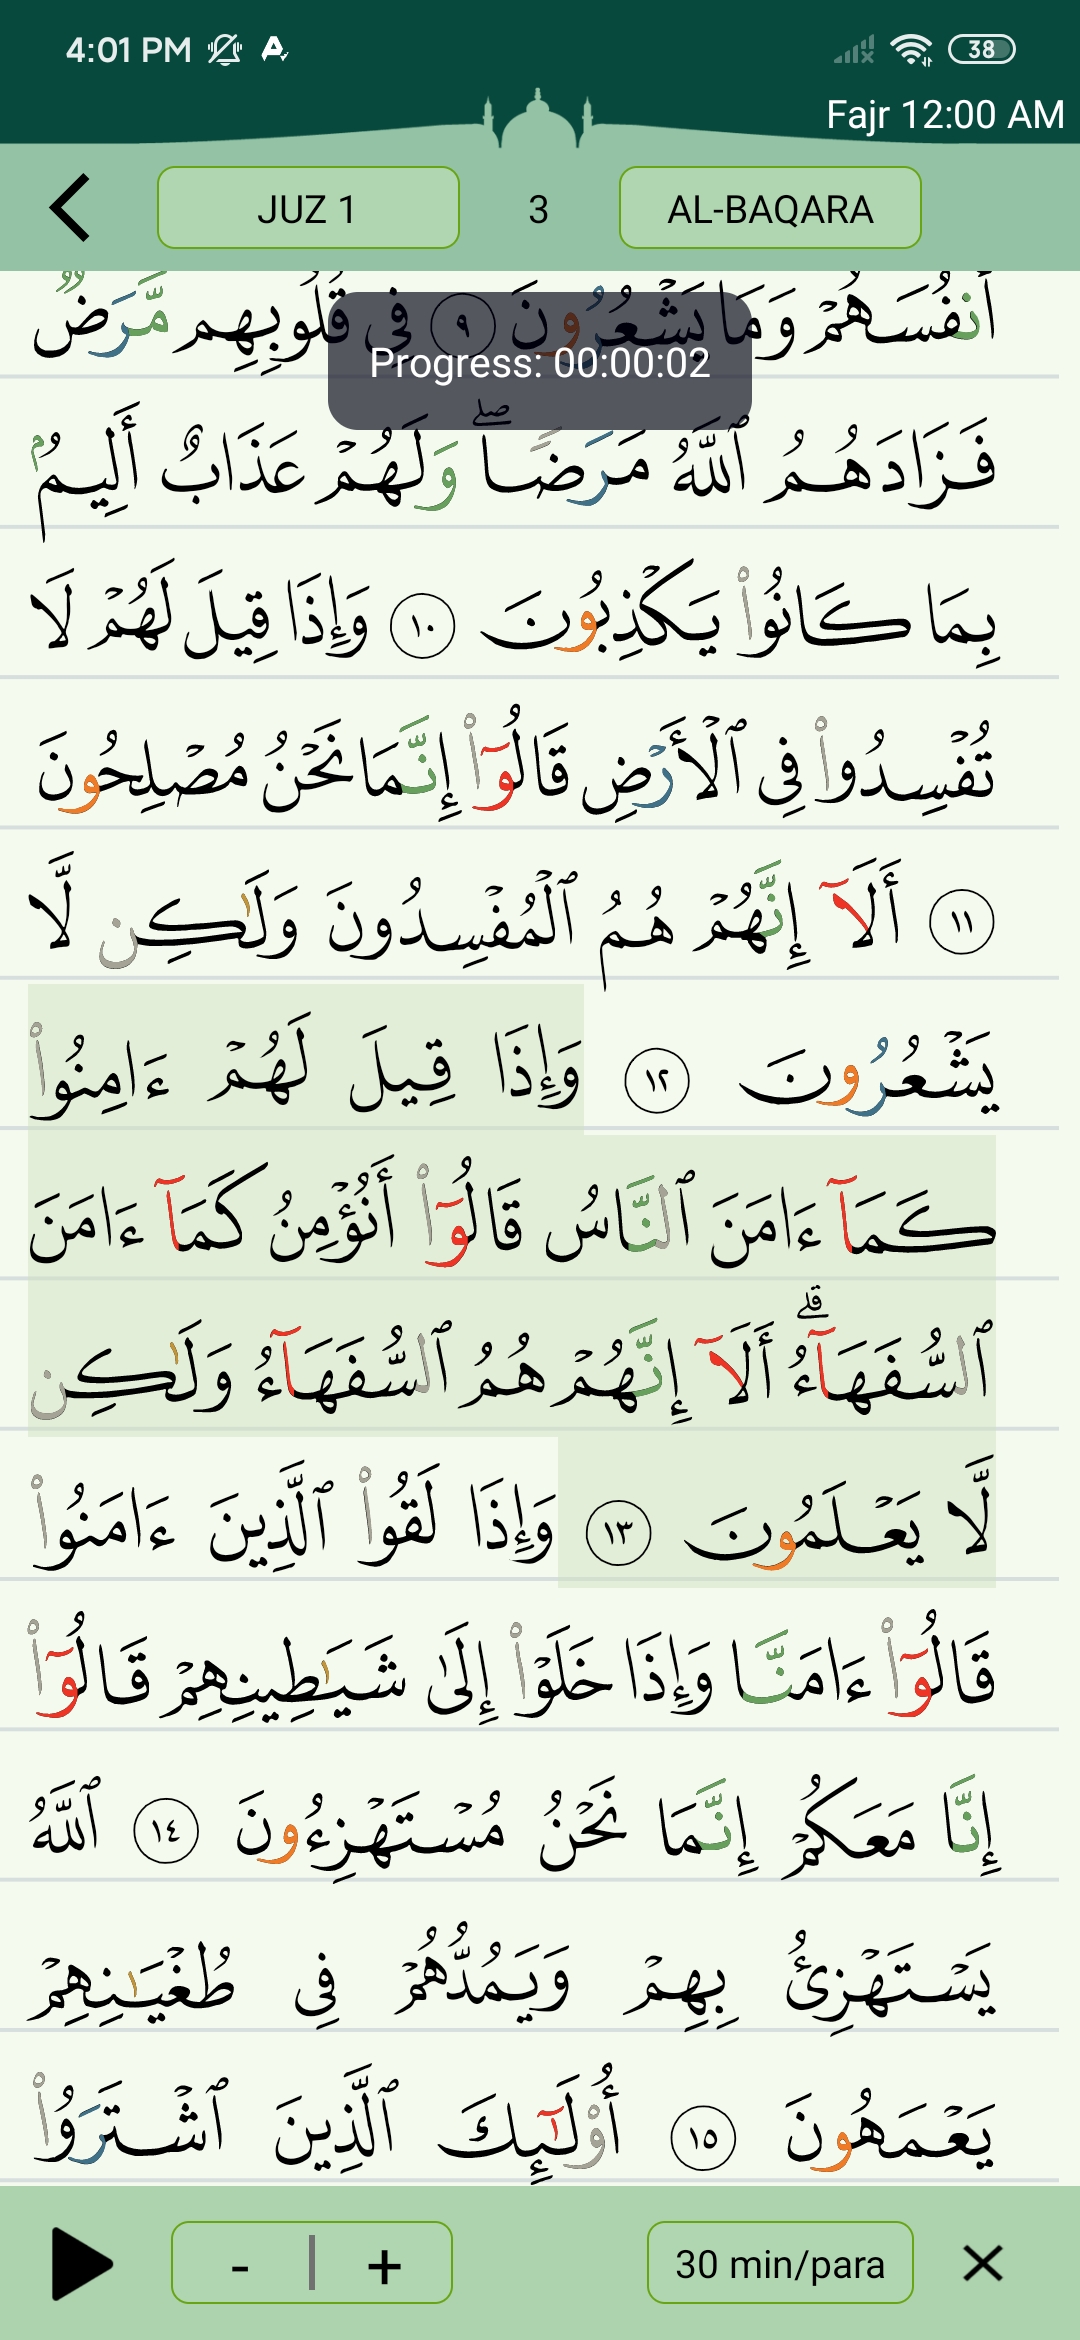 4:01 PM 38
Fajr 12:00 AM
JUZ 1 3 AL-BAQARA
أَنفُسَهُمْ وَمَا يَشْعُرُونَ ٩ فِي قُلُوبِهِم مَّرَضٌ
Progress: 00:00:02
فَزَادَهُمُ ٱللَّهُ مَرَضًا ۖ وَلَهُمْ عَذَابٌ أَلِيمٌۢ
بِمَا كَانُوا۟ يَكْذِبُونَ ١٠ وَإِذَا قِيلَ لَهُمْ لَا
تُفْسِدُوا۟ فِى ٱلْأَرْضِ قَالُوٓا۟ إِنَّمَا نَحْنُ مُصْلِحُونَ
١١ أَلَآ إِنَّهُمْ هُمُ ٱلْمُفْسِدُونَ وَلَـٰكِن لَّا
يَشْعُرُونَ ١٢ وَإِذَا قِيلَ لَهُمْ ءَامِنُوا۟
كَمَآ ءَامَنَ ٱلنَّاسُ قَالُوٓا۟ أَنُؤْمِنُ كَمَآ ءَامَنَ
ٱلسُّفَهَآءُ ۗ أَلَآ إِنَّهُمْ هُمُ ٱلسُّفَهَآءُ وَلَـٰكِن
لَّا يَعْلَمُونَ ١٣ وَإِذَا لَقُوا۟ ٱلَّذِينَ ءَامَنُوا۟
قَالُوٓا۟ ءَامَنَّا وَإِذَا خَلَوْا۟ إِلَىٰ شَيَـٰطِينِهِمْ قَالُوٓا۟
إِنَّا مَعَكُمْ إِنَّمَا نَحْنُ مُسْتَهْزِءُونَ ١٤ ٱللَّهُ
يَسْتَهْزِئُ بِهِمْ وَيَمُدُّهُمْ فِى طُغْيَـٰنِهِمْ
يَعْمَهُونَ ١٥ أُو۟لَـٰٓئِكَ ٱلَّذِينَ ٱشْتَرَوُا۟
- | + 30 min/para